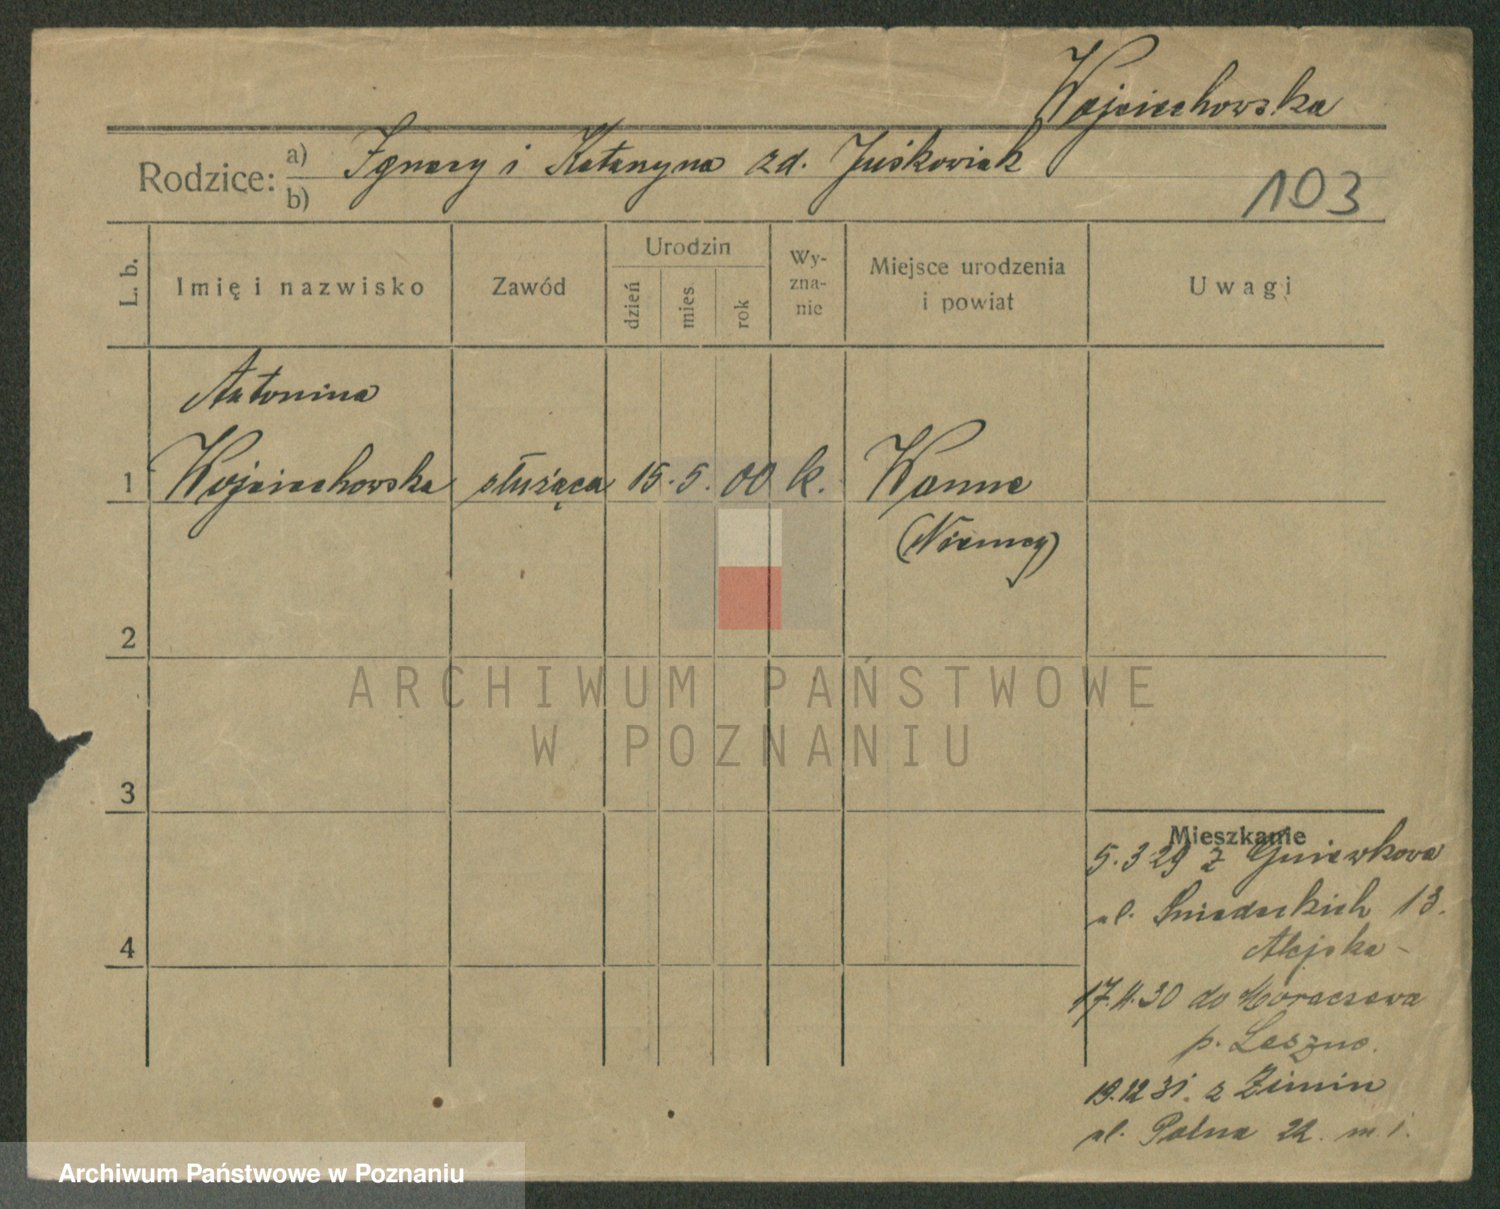 Wojciechowska
Rodzice: a) Ignacy i Katarzyna zd. Juśkowiak
b)
103
L. b.
Imię i nazwisko
Zawód
Urodzin
dzień
mies
rok
Wy-
zna-
nie
Miejsce urodzenia
i powiat
Uwagi
Antonina
1 Wojciechowska służąca 15. 5. 00 k. Wanne
(Niemcy)
2
3
4
Mieszkanie
5.3 29 z Gniewkowa
ul. Śniadeckich 13.
17.11.30 do
p. Leszno.
19.12 31. z Zimin
ul. Polna 22. m. 1.
ARCHIWUM PAŃSTWOWE
W POZNANIU
Archiwum Państwowe w Poznaniu